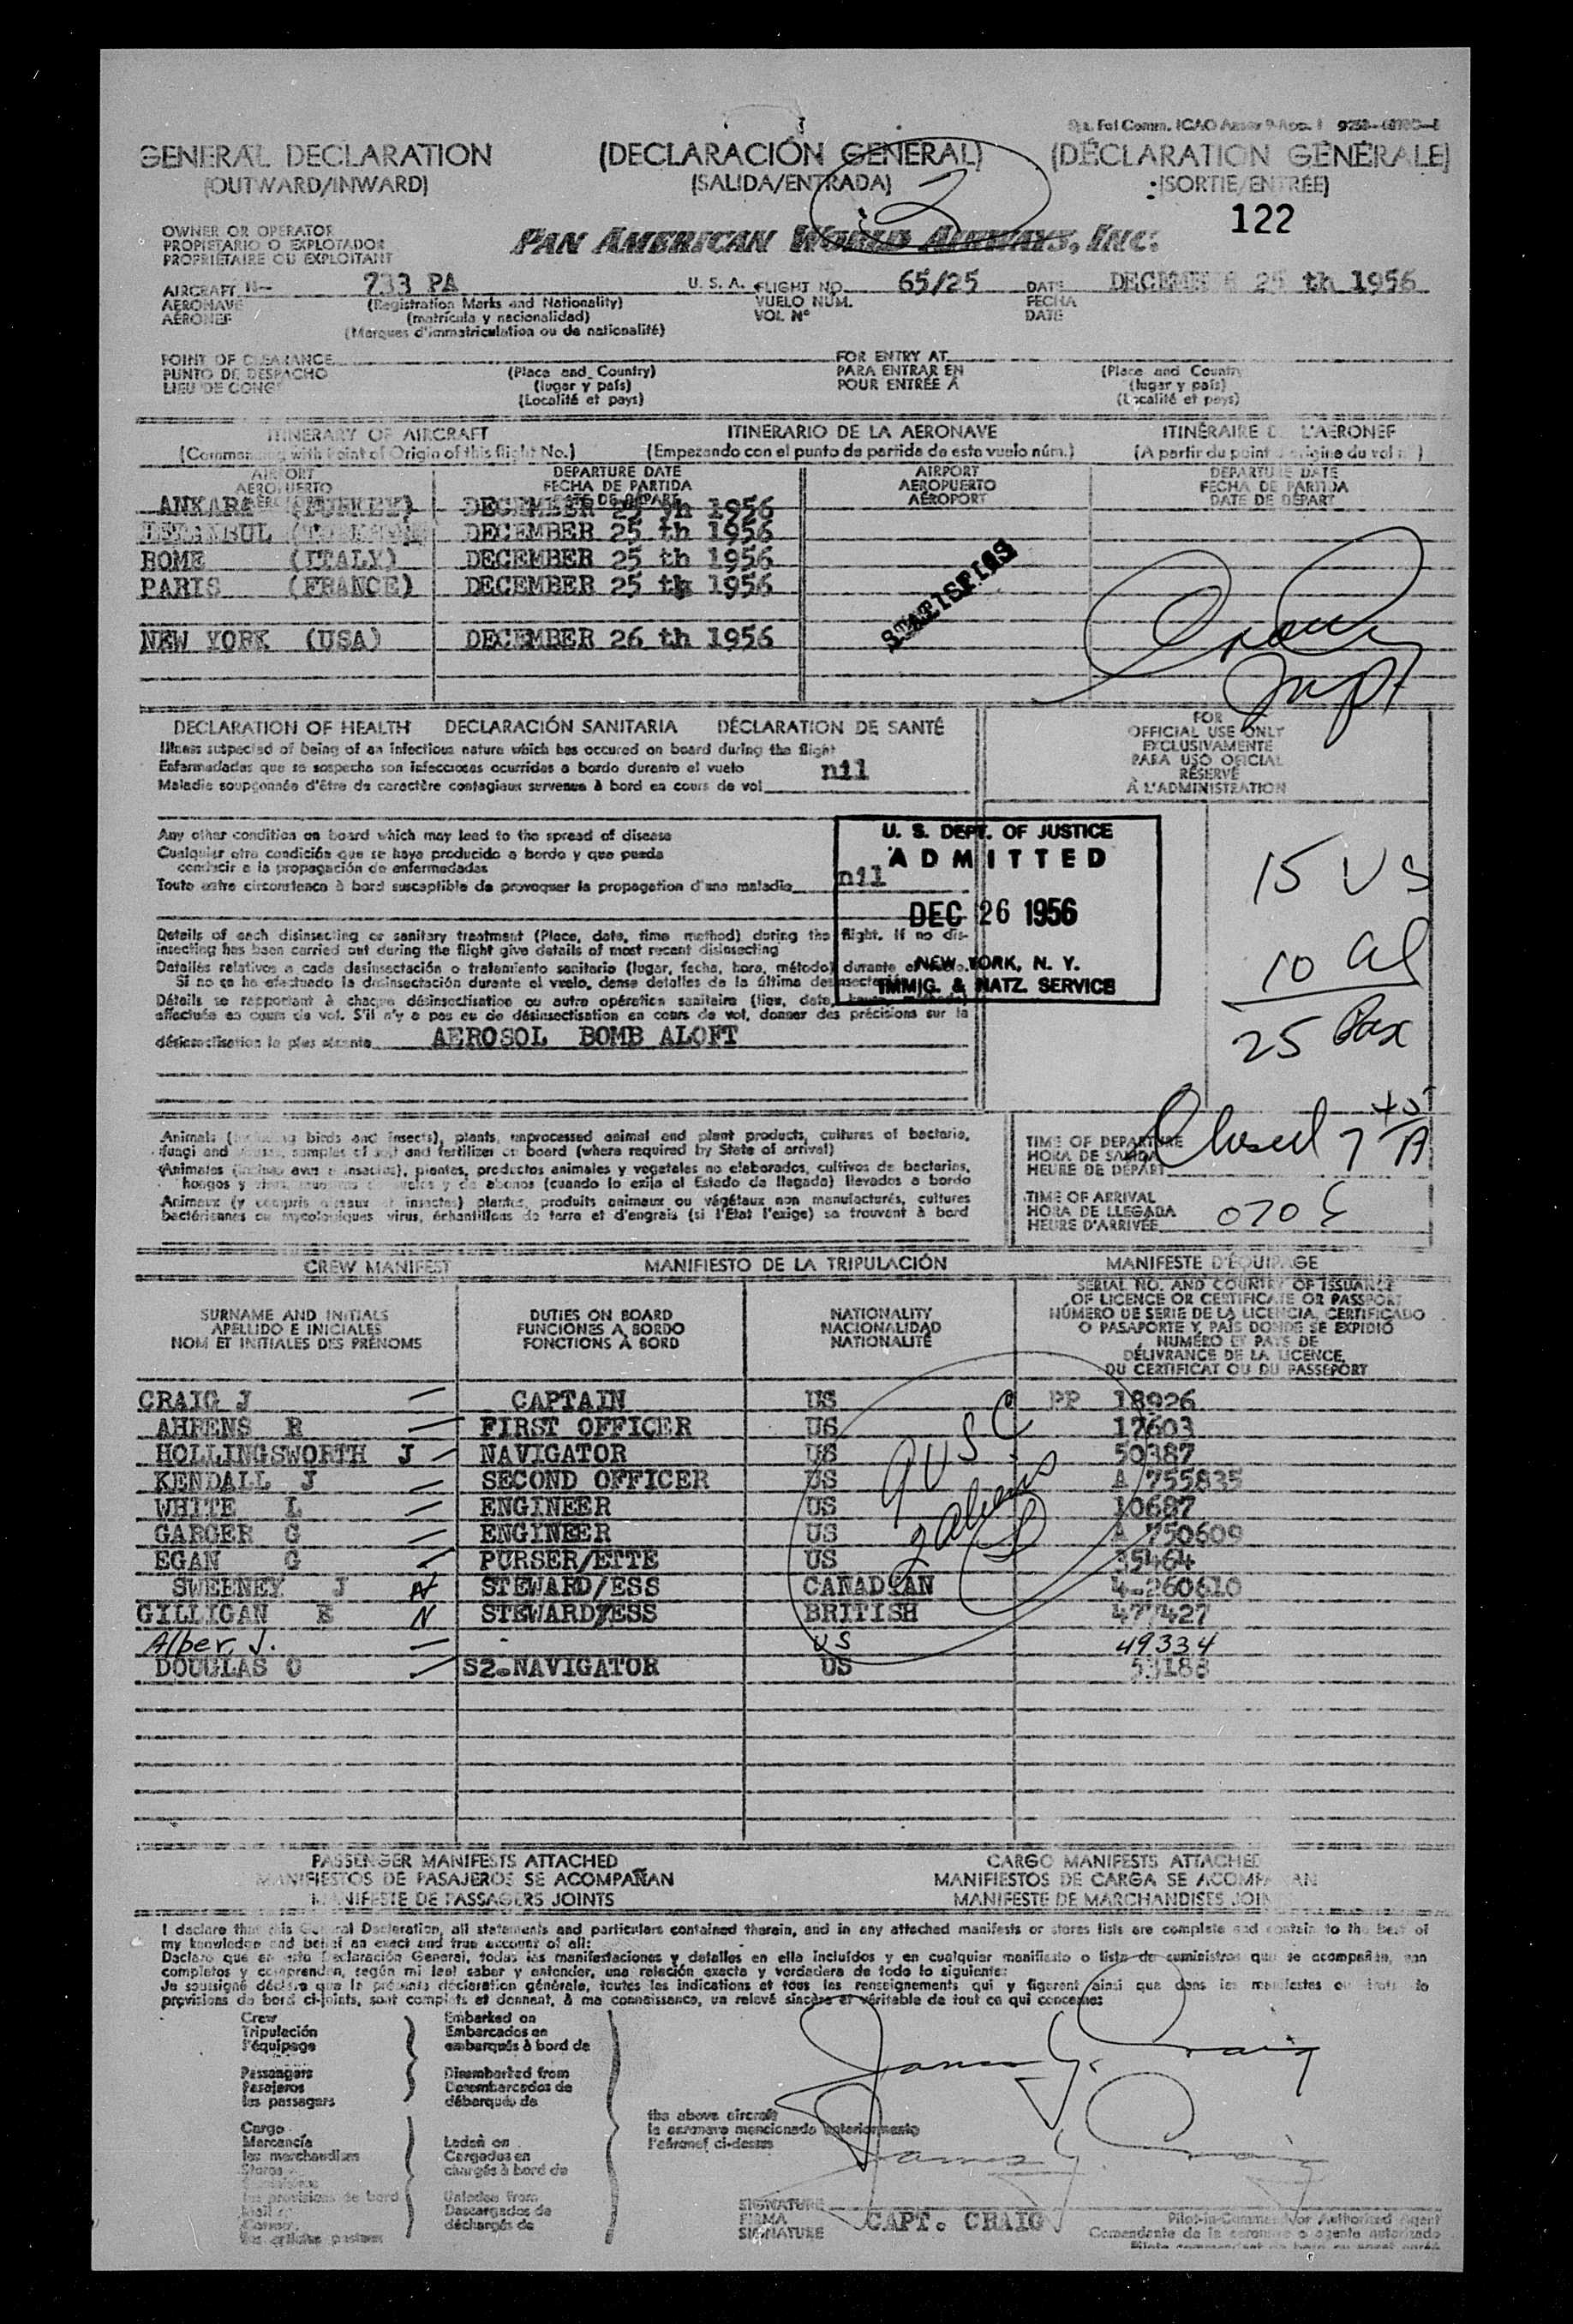 GENERAL DECLARATION (DECLARACIÓN GENERAL) (DÉCLARATION GÉNÉRALE)
(OUTWARD/INWARD) (SALIDA/ENTRADA) (SORTIE/ENTRÉE)
2
122
OWNER OR OPERATOR
PROPIETARIO O EXPLOTADOR
PROPRIÉTAIRE OU EXPLOITANT
PAN AMERICAN WORLD AIRWAYS, INC.
AIRCRAFT N- 733 PA U. S. A. FLIGHT NO. 65/25 DATE DECEMBER 25 th 1956
AERONAVE (Registration Marks and Nationality) VUELO NÚM. FECHA
AÉRONEF (matrícula y nacionalidad) VOL Nº DATE
(Marques d'immatriculation ou de nationalité)
POINT OF CLEARANCE FOR ENTRY AT
PUNTO DE DESPACHO (Place and Country) PARA ENTRAR EN (Place and Country
LIEU DE CONG (lugar y país) POUR ENTRÉE À (lugar y país)
(Localité et pays) (Localité et pays)
ITINERARY OF AIRCRAFT ITINERARIO DE LA AERONAVE ITINÉRAIRE DE L'AÉRONEF
(Commencing with Point of Origin of this flight No.) (Empezando con el punto de partida de este vuelo núm.) (A partir du point d'origine du vol n )
AIRPORT DEPARTURE DATE AIRPORT DEPARTURE DATE
AEROPUERTO FECHA DE PARTIDA AEROPUERTO FECHA DE PARTIDA
DATE DE DÉPART AÉROPORT DATE DE DÉPART
ANKARA (TURKEY) DECEMBER 25 th 1956
ISTANBUL DECEMBER 25 th 1956
ROME (ITALY) DECEMBER 25 th 1956
PARIS (FRANCE) DECEMBER 25 th 1956
NEW YORK (USA) DECEMBER 26 th 1956
STATISTICS
DECLARATION OF HEALTH DECLARACIÓN SANITARIA DÉCLARATION DE SANTÉ
Illness suspected of being of an infectious nature which has occured on board during the flight
Enfermedades que se sospecha son infecciosas ocurridas a bordo durante el vuelo
Maladie soupçonnée d'être de caractère contagieux survenue à bord en cours de vol nil
FOR
OFFICIAL USE ONLY
EXCLUSIVAMENTE
PARA USO OFICIAL
RÉSERVÉ
À L'ADMINISTRATION
Any other condition on board which may lead to the spread of disease
Cualquier otra condición que se haya producido a bordo y que pueda
conducir a la propagación de enfermedades
Toute autre circonstance à bord susceptible de provoquer la propagation d'une maladie nil
U. S. DEPT. OF JUSTICE
ADMITTED
DEC 26 1956
NEW YORK, N. Y.
IMMIG. & NATZ. SERVICE
15 US
10 al
25 Pax
Details of each disinsecting or sanitary treatment (Place, date, time method) during the flight. If no dis-
insecting has been carried out during the flight give details of most recent disinsecting
Detalles relativos a cada desinsectación o tratamiento sanitario (lugar, fecha, hora, método) durante el vuelo.
Si no se ha efectuado la desinsectación durante el vuelo, dense detalles de la última desinsectación
Détails se rapportant à chaque désinsectisation ou autre opération sanitaire (lieu, date, heure, méthode)
effectuée en cours de vol. S'il n'y a pas eu de désinsectisation en cours de vol, donner des précisions sur la
désinsectisation la plus récente AEROSOL BOMB ALOFT
Animals (including birds and insects), plants, unprocessed animal and plant products, cultures of bacteria,
fungi and viruses, samples of soil and fertilizer on board (where required by State of arrival)
Animales (incluso aves e insectos), plantas, productos animales y vegetales no elaborados, cultivos de bacterias,
hongos y virus, muestras de suelos y de abonos (cuando lo exija el Estado de llegada) llevados a bordo
Animaux (y compris oiseaux et insectes) plantes, produits animaux ou végétaux non manufacturés, cultures
bactériennes ou mycologiques virus, échantillons de terre et d'engrais (si l'État l'exige) se trouvant à bord
TIME OF DEPARTURE
HORA DE SALIDA
HEURE DE DÉPART
Closed 7 45 A
TIME OF ARRIVAL
HORA DE LLEGADA
HEURE D'ARRIVÉE
CREW MANIFEST MANIFIESTO DE LA TRIPULACIÓN MANIFESTE D'ÉQUIPAGE
SURNAME AND INITIALS DUTIES ON BOARD NATIONALITY
APELLIDO E INICIALES FUNCIONES A BORDO NACIONALIDAD
NOM ET INITIALES DES PRÉNOMS FONCTIONS À BORD NATIONALITÉ
SERIAL NO. AND COUNTRY OF ISSUANCE
OF LICENCE OR CERTIFICATE OR PASSPORT
NÚMERO DE SERIE DE LA LICENCIA, CERTIFICADO
O PASAPORTE Y PAÍS DONDE SE EXPIDIÓ
NUMÉRO ET PAYS DE
DÉLIVRANCE DE LA LICENCE,
DU CERTIFICAT OU DU PASSEPORT
CRAIG J CAPTAIN US PP 18926
AHRENS R FIRST OFFICER US 17603
HOLLINGSWORTH J NAVIGATOR US 50387
KENDALL J SECOND OFFICER US A 755835
WHITE L ENGINEER US 10687
GARGER G ENGINEER US A 750609
EGAN G PURSER/ETTE US 35464
SWEENEY J N STEWARD/ESS CANADIAN 4-260610
GILLIGAN E N STEWARD/ESS BRITISH 477427
Alber, J. US 49334
DOUGLAS O S2.NAVIGATOR US 53188
9 USC
2 aliens
PASSENGER MANIFESTS ATTACHED CARGO MANIFESTS ATTACHED
MANIFIESTOS DE PASAJEROS SE ACOMPAÑAN MANIFIESTOS DE CARGA SE ACOMPAÑAN
MANIFESTE DE PASSAGERS JOINTS MANIFESTE DE MARCHANDISES JOIN
I declare that this General Declaration, all statements and particulars contained therein, and in any attached manifests or stores lists are complete and contain to the best of
my knowledge and belief an exact and true account of all:
Declaro que en esta Declaración General, todas las manifestaciones y detalles en ella incluídos y en cualquier manifiesto o lista de suministros que se acompañan, son
completos y comprenden, según mi leal saber y entender, una relación exacta y verdadera de todo lo siguiente:
Je soussigné déclare que la présente déclaration générale, toutes les indications et tous les renseignements qui y figurent ainsi que dans les manifestes ou
provisions de bord ci-joints, sont complets et donnent, à ma connaissance, un relevé sincère et véritable de tout ce qui concerne:
Crew Embarked on
Tripulación Embarcados en
l'équipage embarqués à bord de
Passengers Disembarked from
Pasajeros Desembarcados de
les passagers débarqués de
Cargo
Mercancía Laden on
les marchandises Cargados en
Stores chargés à bord de
les provisions de bord Unladen from
Descargados de
déchargés de
the above aircraft
la aeronave mencionada anteriormente
l'aéronef ci-dessus
James J. Craig
James J. Craig
SIGNATURE
FIRMA CAPT. CRAIG
SIGNATURE
Pilot-in-Command or Authorized Agent
Comandante de la aeronave o agente autorizado